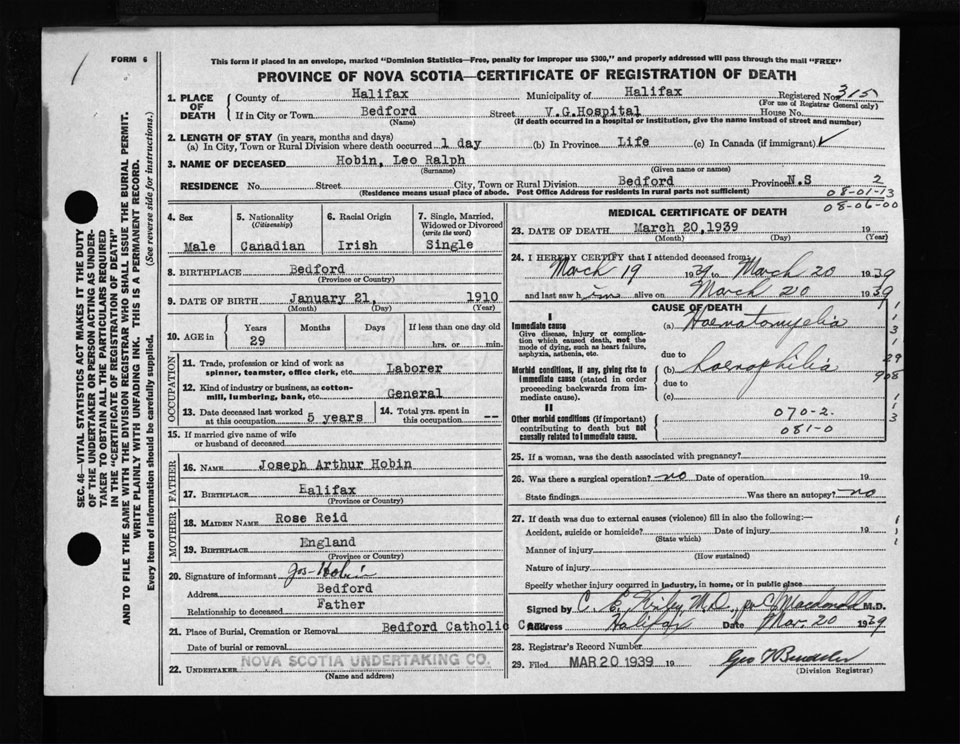 FORM 6
This form if placed in an envelope, marked "Dominion Statistics—Free, penalty for improper use $300," and properly addressed will pass through the mail "FREE"
PROVINCE OF NOVA SCOTIA—CERTIFICATE OF REGISTRATION OF DEATH
1. PLACE OF DEATH
County of Halifax Municipality of Halifax Registered No. 315
(For use of Registrar General only)
If in City or Town Bedford Street V.G.Hospital House No.
(Name) (If death occurred in a hospital or institution, give the name instead of street and number)
2. LENGTH OF STAY (in years, months and days)
(a) In City, Town or Rural Division where death occurred 1 day (b) In Province Life (c) In Canada (if immigrant) ✓
3. NAME OF DECEASED Hobin, Leo Ralph
(Surname) (Given name or names)
RESIDENCE No. Street City, Town or Rural Division Bedford Province N.S 2
(Residence means usual place of abode. Post Office Address for residents in rural parts not sufficient)
08-01-13
08-06-00
4. Sex Male
5. Nationality (Citizenship) Canadian
6. Racial Origin Irish
7. Single, Married, Widowed or Divorced (write the word) Single
8. BIRTHPLACE Bedford
(Province or Country)
9. DATE OF BIRTH January 21, 1910
(Month) (Day) (Year)
10. AGE in Years 29 Months Days If less than one day old hrs. or min.
OCCUPATION
11. Trade, profession or kind of work as spinner, teamster, office clerk, etc. Laborer
12. Kind of industry or business, as cotton-mill, lumbering, bank, etc. General
13. Date deceased last worked at this occupation 5 years
14. Total yrs. spent in this occupation --
15. If married give name of wife or husband of deceased
FATHER
16. NAME Joseph Arthur Hobin
17. BIRTHPLACE Halifax
(Province or Country)
MOTHER
18. MAIDEN NAME Rose Reid
19. BIRTHPLACE England
(Province or Country)
20. Signature of informant Jos Hobin
Address Bedford
Relationship to deceased Father
21. Place of Burial, Cremation or Removal Bedford Catholic C
Date of burial or removal
22. UNDERTAKER NOVA SCOTIA UNDERTAKING CO.
(Name and address)
MEDICAL CERTIFICATE OF DEATH
23. DATE OF DEATH March 20,1939 19
(Month) (Day) (Year)
24. I HEREBY CERTIFY that I attended deceased from
March 19 1939 to March 20 1939
and last saw him alive on March 20 1939
CAUSE OF DEATH
I
Immediate cause
Give disease, injury or complication which caused death, not the mode of dying, such as heart failure, asphyxia, asthenia, etc.
(a) Haematomyelia
due to
Morbid conditions, if any, giving rise to immediate cause (stated in order proceeding backwards from immediate cause).
(b) haemophilia
due to
(c)
II
Other morbid conditions (if important) contributing to death but not causally related to immediate cause.
070-2.
081-0
1
1
3
1
29
908
1
1
3
25. If a woman, was the death associated with pregnancy?
26. Was there a surgical operation? no Date of operation 19
State findings Was there an autopsy? no
27. If death was due to external causes (violence) fill in also the following:—
Accident, suicide or homicide? Date of injury 19
(State which)
Manner of injury
(How sustained)
Nature of injury
Specify whether injury occurred in industry, in home, or in public place
1
1
1
Signed by M.D., M.D.
Address Halifax Date Mar. 20 1939
28. Registrar's Record Number
29. Filed MAR 20 1939 19 Geo
(Division Registrar)
SEC. 46—VITAL STATISTICS ACT MAKES IT THE DUTY
OF THE UNDERTAKER OR PERSON ACTING AS UNDER-
TAKER TO OBTAIN ALL THE PARTICULARS REQUIRED
IN THE "CERTIFICATE OF REGISTRATION OF DEATH"
AND TO FILE THE SAME WITH THE DIVISION REGISTRAR WHO SHALL ISSUE THE BURIAL PERMIT.
WRITE PLAINLY WITH UNFADING INK. THIS IS A PERMANENT RECORD.
Every item of information should be carefully supplied. (See reverse side for instructions.)